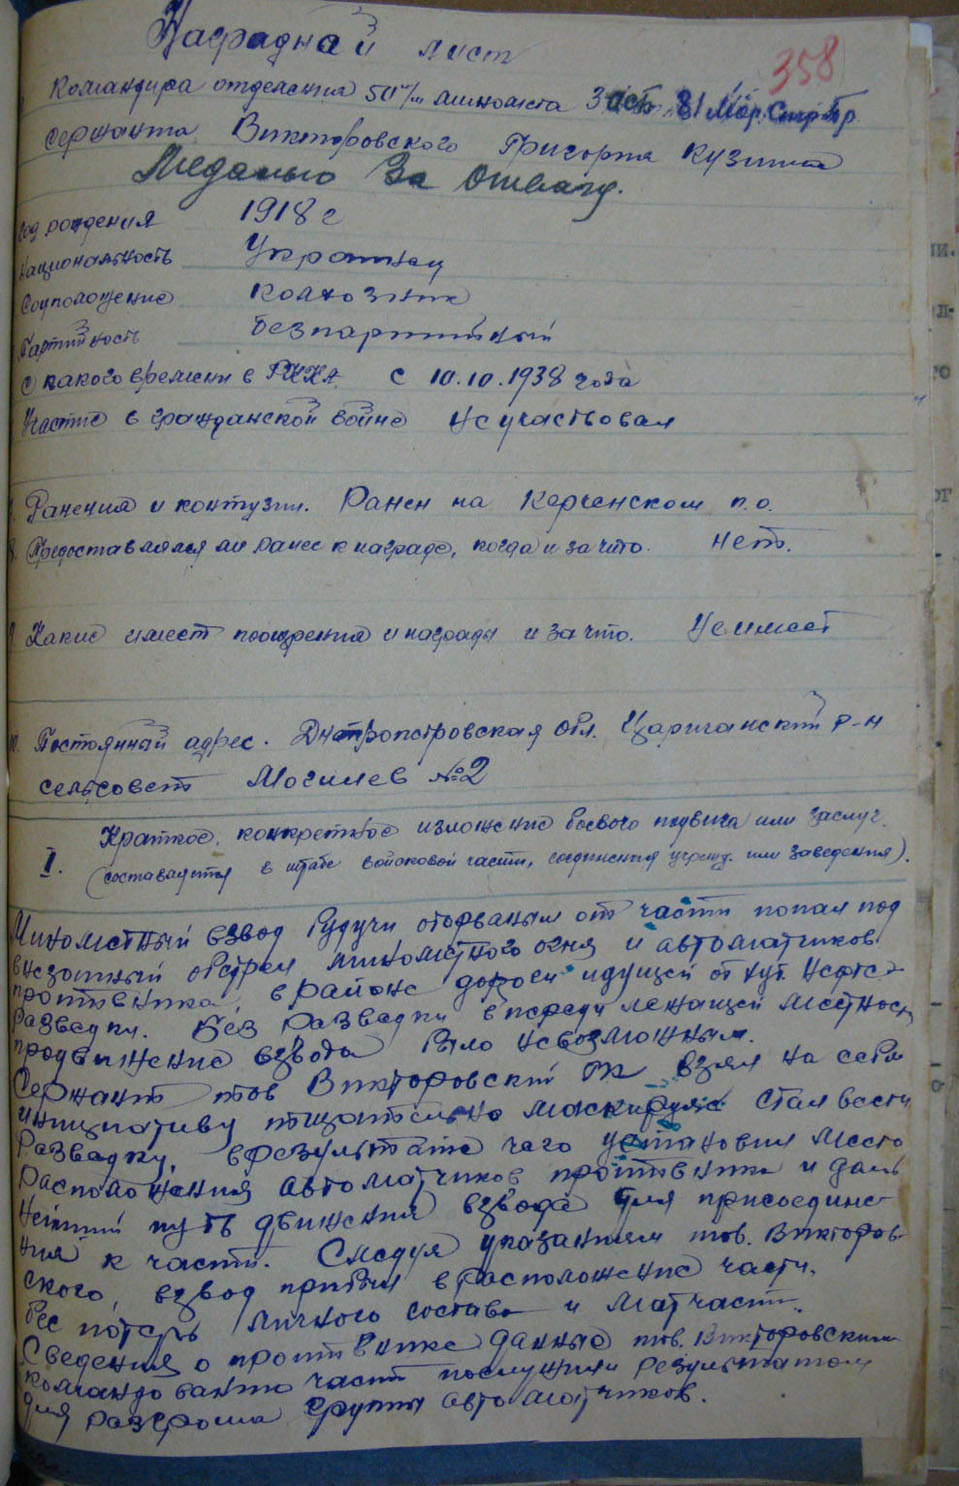 Наградной лист
358
Командира отделения 50 м/м миномета 3 осб 81 Мор. Стр. бр.
сержанта Викторовского Григория Кузмича
Медалью За Отвагу.
год рождения 1918 г
Национальность Украинец
Соцположение колхозник
Партийность безпартийный
С какого времени в РККА с 10.10.1938 года
Участие в гражданской войне не участвовал
Ранения и контузии. Ранен на Керченском п.о.
8. Предоставлялся ли ранее к награде, когда и за что. нет.
9. Какие имеет поощрения и награды и за что. Не имеет
10. Постоянный адрес. Днепропетровская обл. Царичанский р-н
сельсовет Могилев №2
I. Краткое, конкретное изложение боевого подвига или заслуг.
(составляется в штабе войсковой части, соединения учрежд. или заведения).
Минометный взвод будучи оторваным от части попал под
внезапный обстрел минометного огня и автоматчиков
противника, в районе дороги идущей от хут. Нефте-
разведки. Без разведки впереди лежащей местности
продвижение взвода было невозможным.
Сержант тов Викторовский ГК взял на себя
инициативу тщательно маскируясь стал вести
разведку, врезультате чего установил место
расположения автоматчиков противника и даль
нейший путь движения взвода для присоедине-
ния к части. Следуя указаниям тов. Викторов-
ского, взвод прибыл в расположение части,
бес потерь личного состава и матчасти.
Сведения о противнике данные тов. Викторовским
командованию части послужили результатом
для разгрома группы автоматчиков.